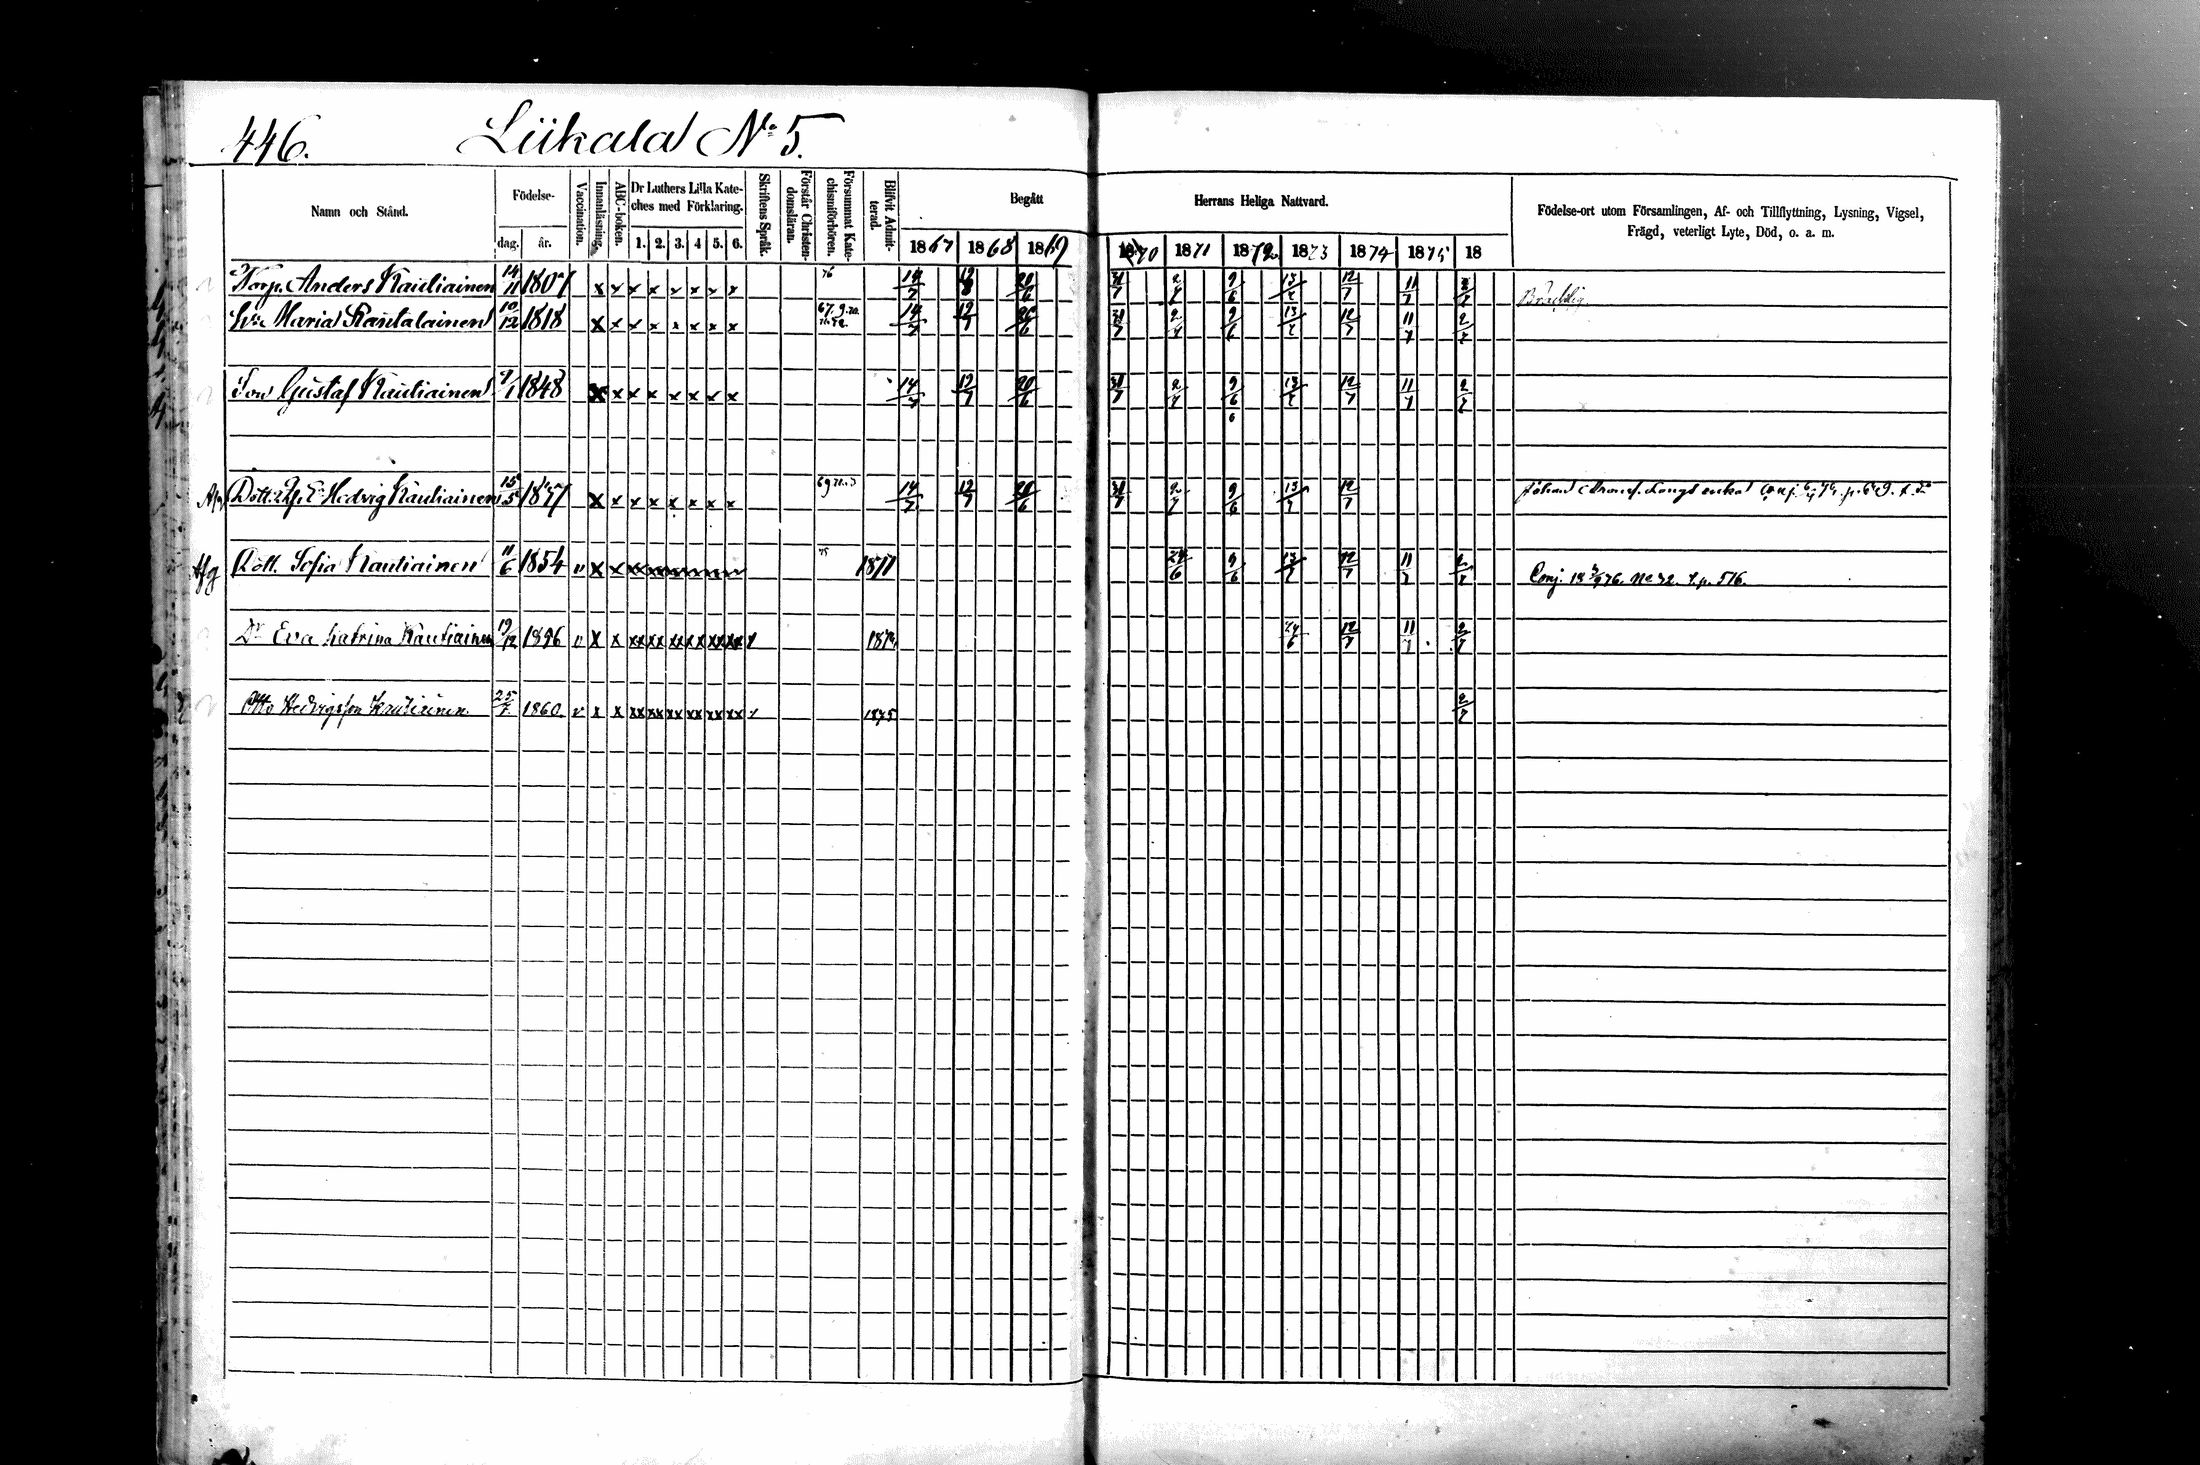 446. Liikala No 5.
Namn och Stånd. Födelse- dag. år. Vaccination. Innanläsning. ABC-boken. Dr Luthers Lilla Kateches med Förklaring. 1. 2. 3. 4 5. 6. Skriftens Språk. Förstår Christendomsläran. Försummat Katechismiförhören. Blifvit Admitterad. Begått Herrans Heliga Nattvard. Födelse-ort utom Församlingen, Af- och Tillflyttning, Lysning, Vigsel, Frägd, veterligt Lyte, Död, o. a. m.
1867 1868 1869 1870 1871 1872 1873 1874 1875 18
Torp. Anders Rautiainen 14/11 1807 x x x x x x x x 76 14/7 12/7 20/6 31/7 2/7 9/6 13/7 12/7 11/7 2/7 Bräcklig.
Hu Maria Rautalainen 10/12 1818 x x x x x x x x 14/7 12/7 20/6 31/7 2/7 9/6 13/7 12/7 11/7 2/7
Son Gustaf Rautiainen 1848 x x x x x x x x 14/7 12/7 20/6 31/7 2/7 9/6 13/7 12/7 11/7 2/7
6
Afg Dott. Hedvig Rautiainen 15/5 x x x x x x x x 14/7 12/7 20/6 31/7 2/7 9/6 13/7 12/7 Johan enka
Afg Dott. Sofia Rautiainen 11/6 1854 v x x 75 1871 24/6 9/6 13/7 12/7 11/7 2/7 Conj. 18 3/9 76. No 32. t.p. 516.
Dr Eva Katrina Rautiainen 19/12 1856 v x x xx xx xx xx xx xx 24/6 12/7 11/7 2/7
Otto Hedvigsson Rautiainen 25/7 1860 v x x xx xx xx xx xx xx 1875 2/7